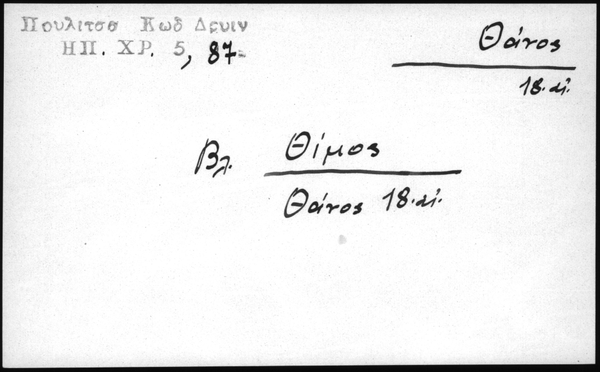 Πουλιτσα Κωδ Δρυιν
ΗΠ. ΧΡ. 5, 87-
Θάνος
18.αἰ.
Βλ. Θίμος
Θάνος 18.αἰ.